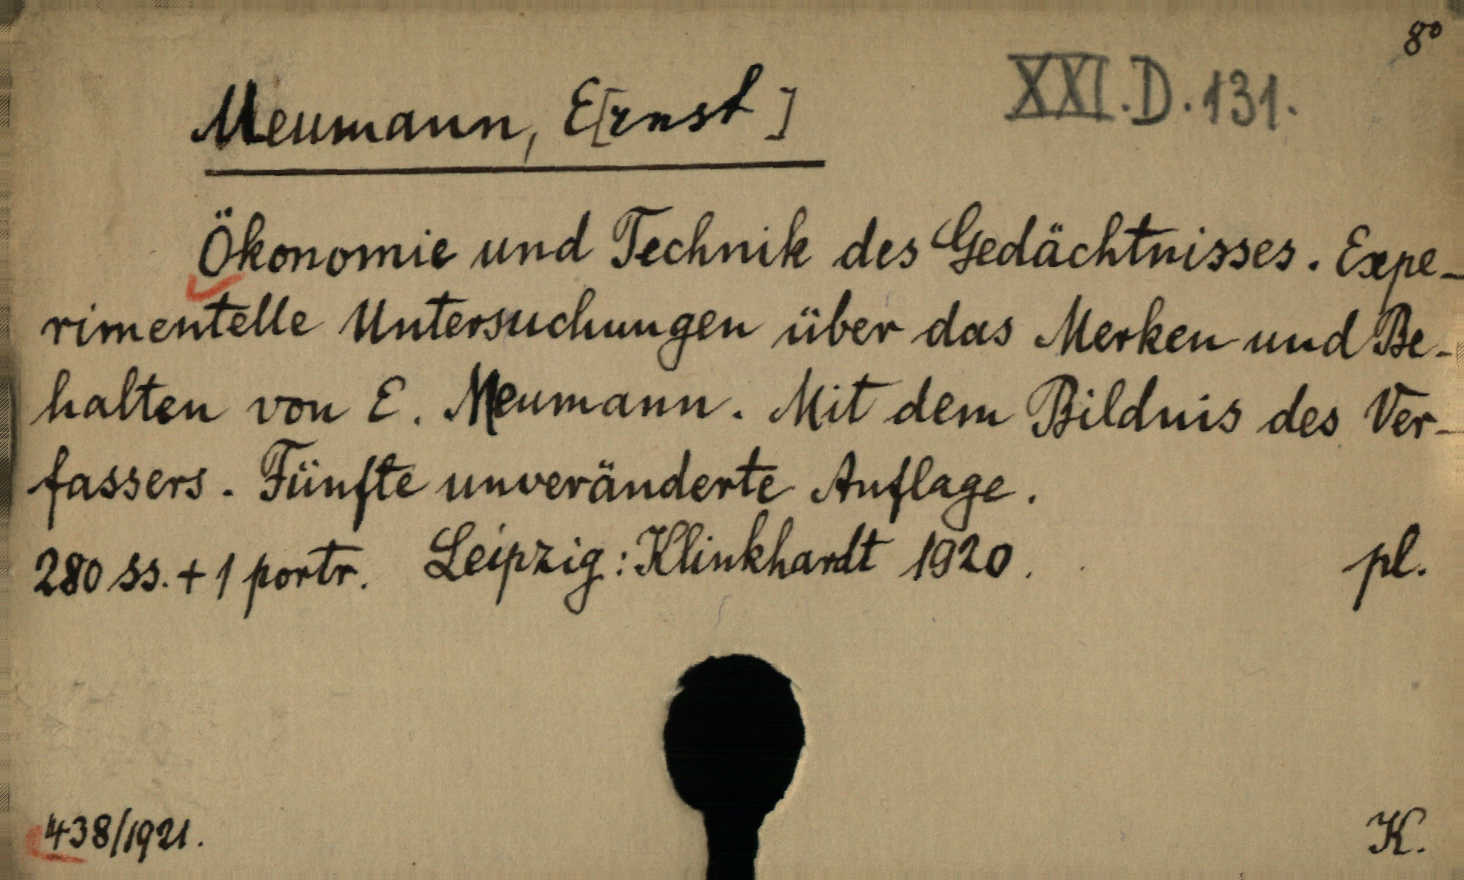 8°
Meumann, E[rnst] XXI.D.131.
Ökonomie und Technik des Gedächtnisses. Expe-
rimentelle Untersuchungen über das Merken und Be-
halten von E. Meumann. Mit dem Bildnis des Ver-
fassers. Fünfte unveränderte Auflage.
280 ss. + 1 portr. Leipzig: Klinkhardt 1920. pl.
438/1921. K.